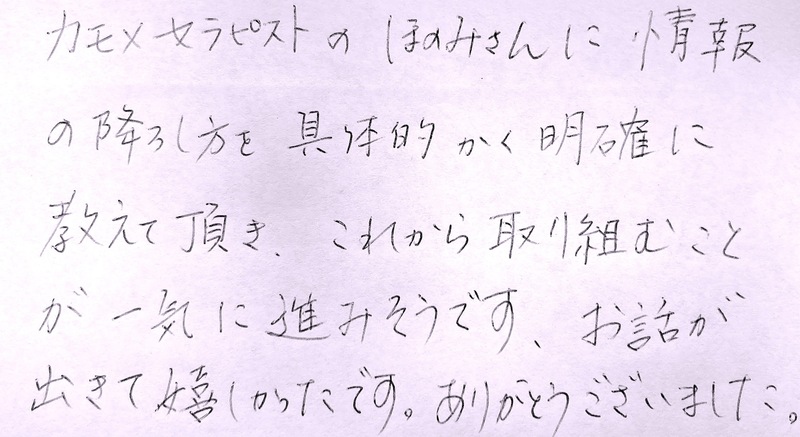 カモメセラピストの ほのみさんに 情報
の降ろし方を 具体的かく明確に
教えて頂き、これから取り組むこと
が 一気に進みそうです、お話が
出きて嬉しかったです。ありがとうございました。